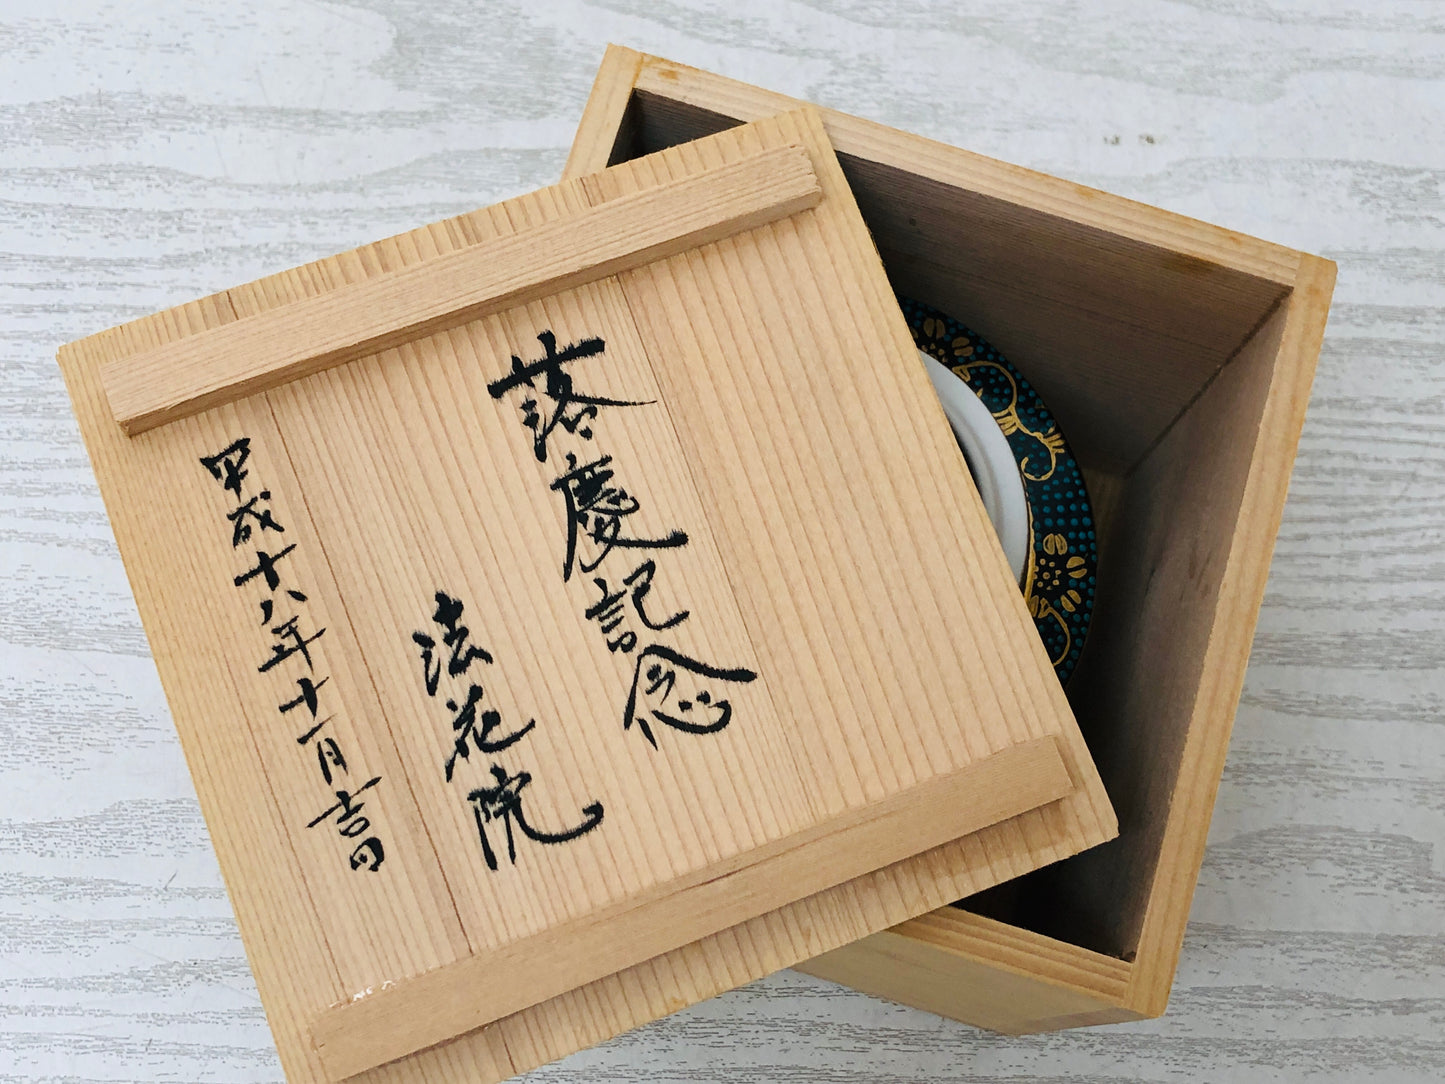 落慶記念
法花院
平成十八年十一月吉日